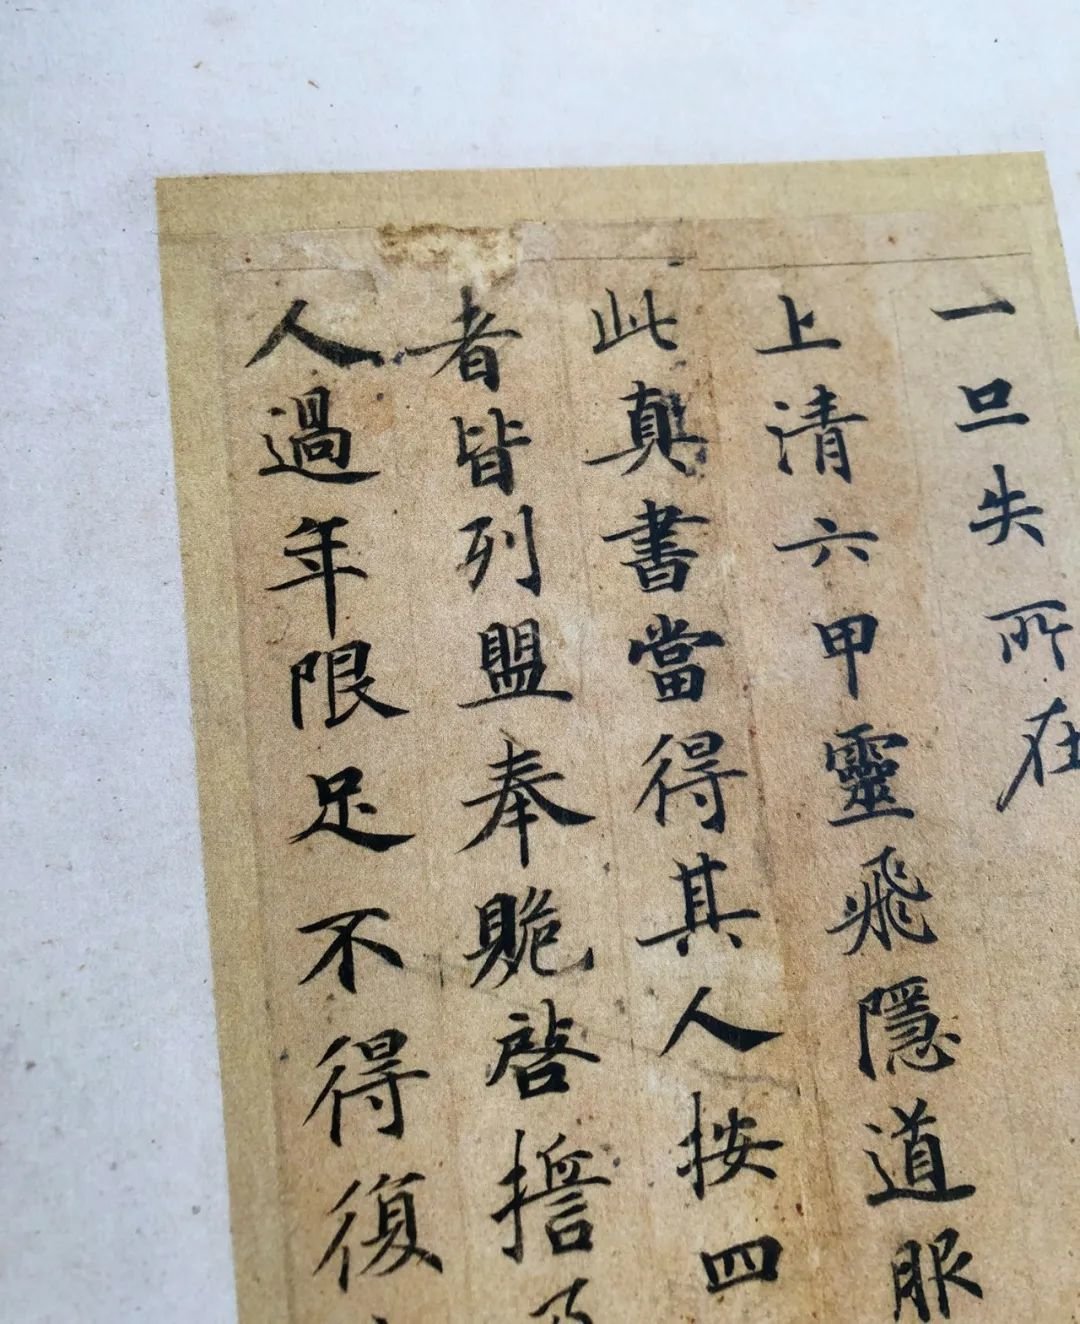 一旦失所在
上清六甲靈飛隱道服
此真書當得其人按四
者皆列盟奉贉啓擔
人過年限足不得復